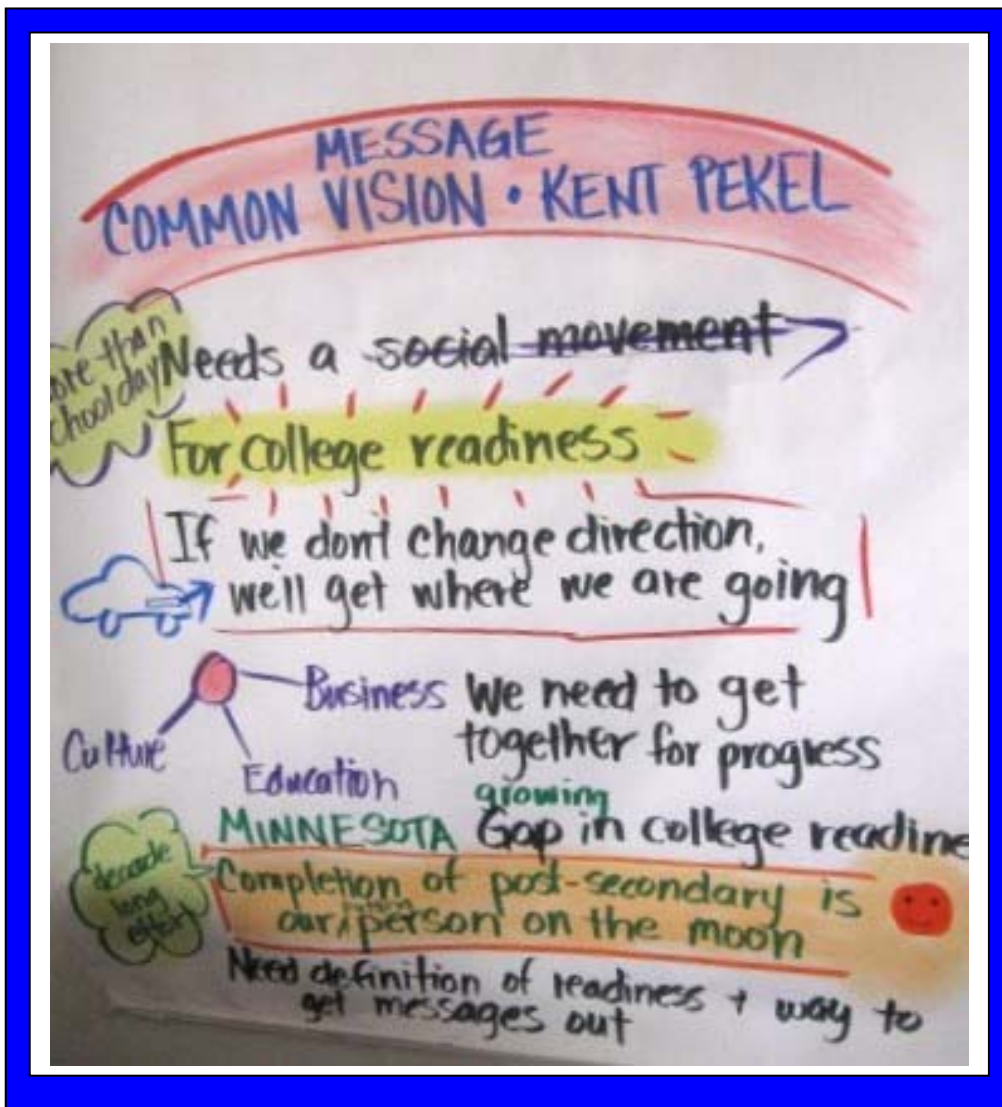 MESSAGE
COMMON VISION • KENT PEKEL
ore than
chool day
Needs a social movement
For college readiness
If we don't change direction,
we'll get where we are going
Business
Culture
Education
We need to get
together for progress
growing
MINNESOTA Gap in college readine
decade
long
effort
Completion of post-secondary is
our person on the moon
Need definition of readiness + way to
get messages out